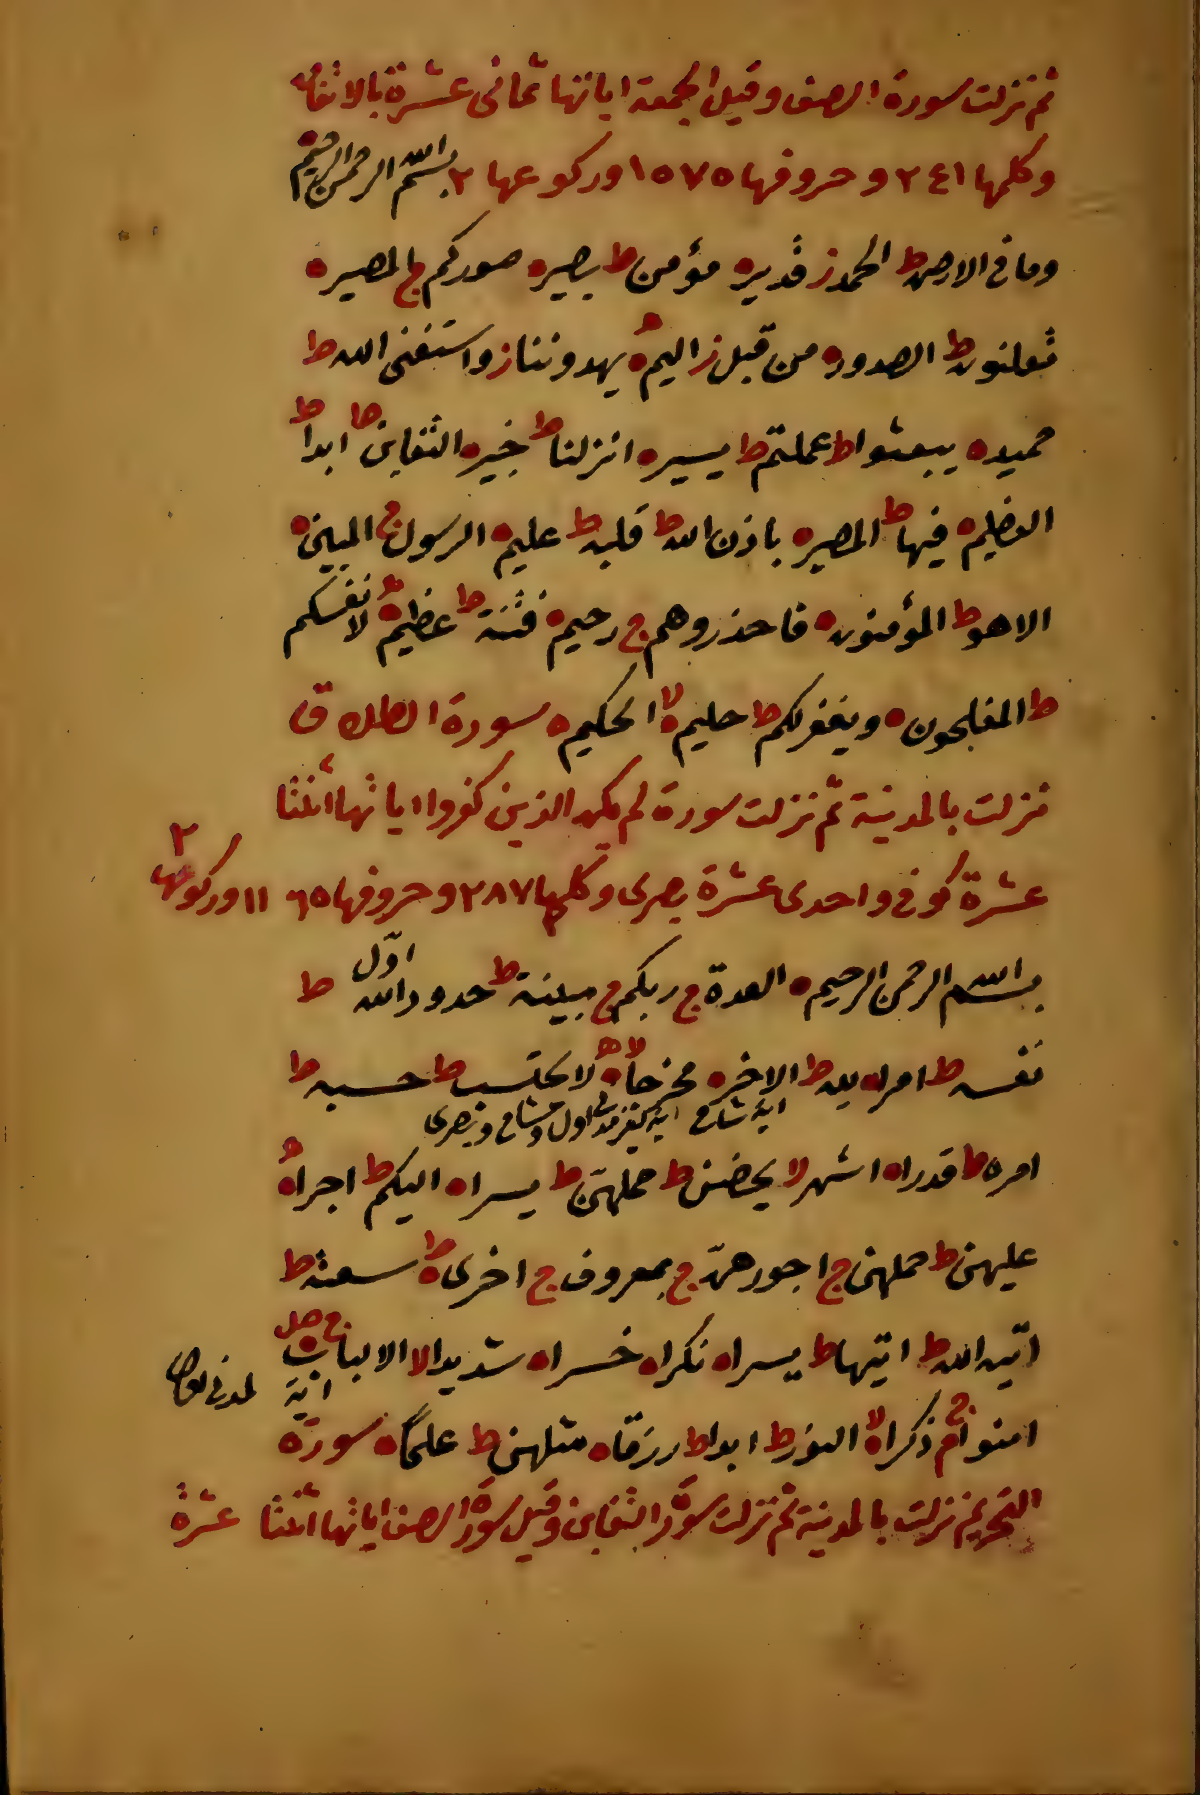 ثم نزلت سورة الصف وقيل الجمعة اياتها ثماني عشرة بالاتفاق
وكلمها ٢٤١ وحروفها ١٥٧٥ وركوعها ٢ بسم الله الرحمن الرحيم
وما فى الارض ط الحمد ز قدير ه مؤمن ط بصير ه صوركم ج المصير ه
تعلنون ط الصدور ه من قبل ز اليم ه يهدوننا ز واستغنى الله ط
حميد ه يبعثوا ط عملتم ط يسير ه انزلنا ط خبير ه التغابن ط ابدا ط
العظيم ه فيها ط المصير ه باذن الله ط قلبه ط عليم ه الرسول ج المبين ه
الا هو ط المؤمنون ه فاحذروهم ج رحيم ه فتنة ط عظيم ه لانفسكم
ط المفلحون ه ويغفر لكم ط حليم ه لا الحكيم ه سورة الطلاق
نزلت بالمدينة ثم نزلت سورة لم يكن الذين كفروا اياتها اثنتا
عشرة كوفى واحدى عشرة بصرى وكلمها ٢٨٧ وحروفها ١١٦٥ وركوعها ٢
بسم الله الرحمن الرحيم ه العدة ج ربكم ج مبينة ط حدود الله اول ط
نفسه ط امرا ه لله ط الاخر ه مخرجا ه لا لا يحتسب ط حسبه ط
اية شامى اية اول
امره ط قدرا ه اشهر لا يحضن ط حملهن ط يسرا ه اليكم ط اجرا ه
عليهن ط حملهن ج اجورهن ج بمعروف ج اخرى ه ط سعته ط
اتيه الله ط اتيها ط يسرا ه نكرا ه خسرا ه شديدا لا الالباب ج صل
اية لمدنى
امنوا ج ذكرا ه لا النور ط ابدا ط رزقا ه مثلهن ط علما ه سورة
التحريم نزلت بالمدينة ثم نزلت سورة التغابن وقيل سورة الصف اياتها اثنتا عشرة